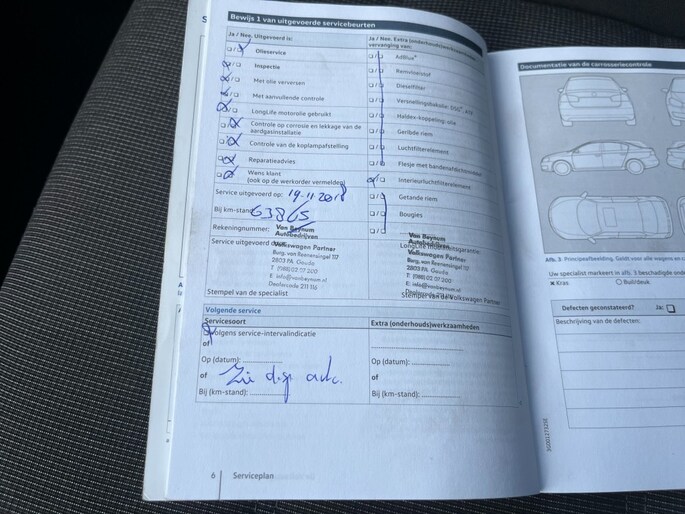 Bewijs 1 van uitgevoerde servicebeurten
Ja / Nee. Uitgevoerd is:
Olieservice
Inspectie
Met olie verversen
Met aanvullende controle
LongLife motorolie gebruikt
Controle op corrosie en lekkage van de
aardgasinstallatie
Controle van de koplampafstelling
Reparatieadvies
Wens klant
(ook op de werkorder vermelden)
Service uitgevoerd op: 19-11-2018
Bij km-stand: 63865
Rekeningnummer:
Service uitgevoerd door:
Van Beynum
Autobedrijven
Volkswagen Partner
Burg. van Reenensingel 117
2803 PA Gouda
Stempel van de specialist
Ja / Nee. Extra (onderhouds)werkzaamheden
vervanging van:
AdBlue®
Remvloeistof
Dieselfilter
Haldex-koppeling: olie
Geribde riem
Luchtfilterelement
Interieurluchtfilterelement
Getande riem
Bougies
Van Beynum
Autobedrijven
Volkswagen Partner
Burg. van Reenensingel 117
2803 PA Gouda
Stempel van de Volkswagen Partner
Volgende service
Servicesoort
Volgens service-intervalindicatie
of
Op (datum):
of Zie disp auto.
Bij (km-stand):
Extra (onderhouds)werkzaamheden
Op (datum):
of
Bij (km-stand):
6 Serviceplan
Documentatie van de carrosseriecontrole
Afb. 3 Principeafbeelding. Geldt voor alle wagens en
Uw specialist markeert in afb. 3 beschadigde
Kras
Buil/deuk
Defecten geconstateerd? Ja:
Beschrijving van de defecten: